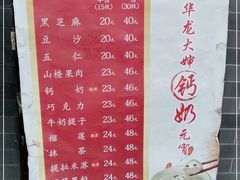 (15枚) (30枚)
黑芝麻 20元 40元
豆沙 20元 40元
五仁 20元 40元
山楂果肉 23元 46元
钙奶 23元 46元
巧克力 23元 46元
牛奶提子 23元 46元
榴莲 24元 48元
抹茶 24元 48元
提拉米苏 24元 48元
华龙大婶
钙奶
元宵